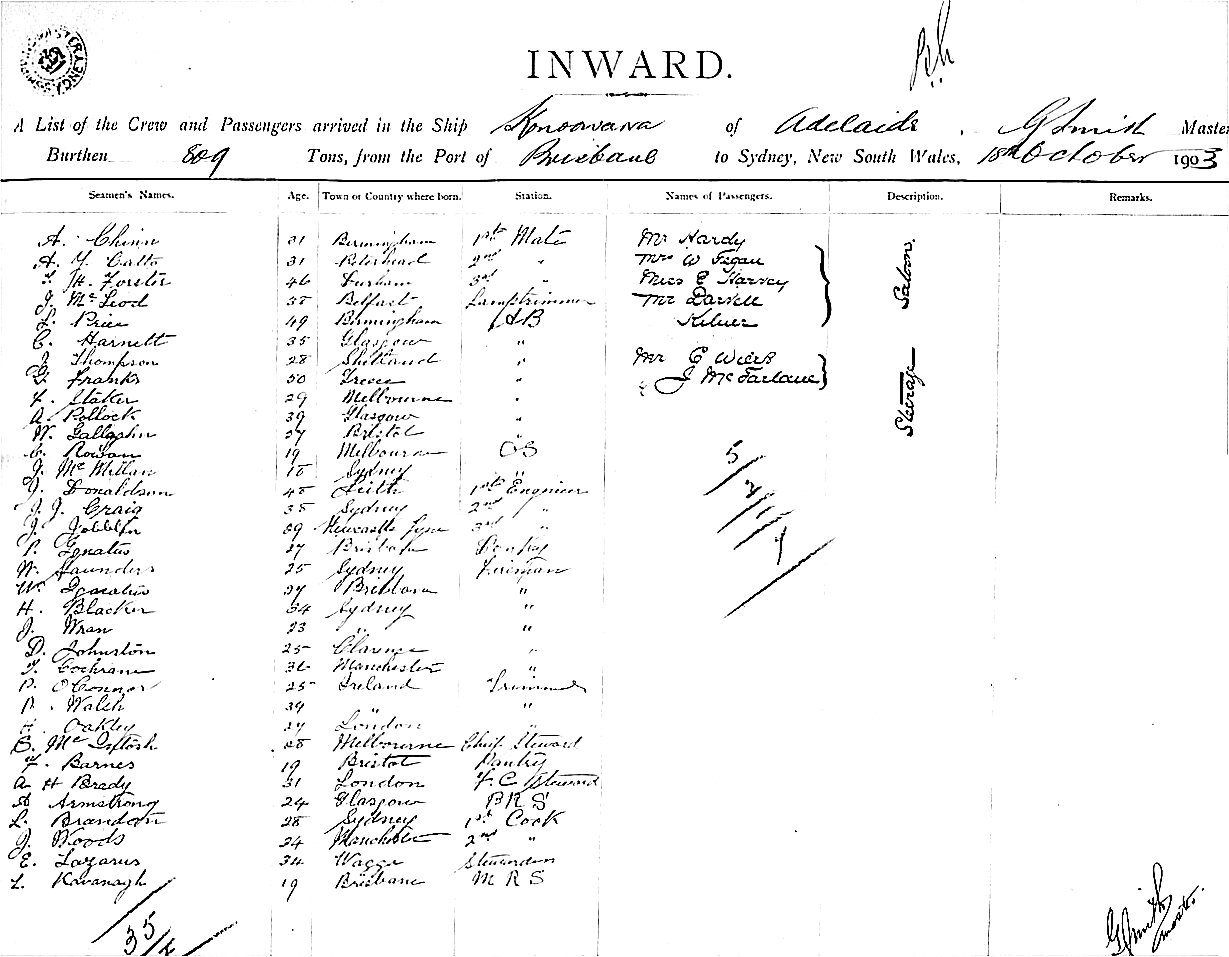 INWARD.
A List of the Crew and Passengers arrived in the Ship Konoowara of Adelaide. G Smith Master
Burthen 809 Tons, from the Port of Brisbane to Sydney, New South Wales, 18th October 1903
Seamen's Names. Age. Town or Country where born. Station. Names of Passengers. Description. Remarks.
A. Chinn 31 Birmingham 1st Mate Mr Hardy
A. Y. Catto 31 Peterhead 2nd " Mrs W Fagan Saloon.
T. H. Forster 46 Durham 3rd " Miss E Harvey
J. McLeod Belfast Lamptrimmer Mr Darvell
L. Price 49 Birmingham AB
C. Harnett 35 Glasgow "
J. Thompson 28 Shetland " Mr C
G. Franks 50 Greece " " J McFarlane Steerage
29 Melbourne "
A. Pollock 39 Glasgow "
W. 37 Bristol "
C. Rowan 19 Melbourne OS
J. McMillan 18 Sydney "
J. Donaldson 48 Leith 1st Engineer
J. J. Craig 38 Sydney 2nd "
J. 59 Newcastle Tyne 3rd "
P. Ignatius 27 Brisbane Donkey
W. Saunders 25 Sydney Fireman
W. 27 Brisbane "
H. Blacker 34 Sydney "
J. Wran 23 " "
D. Johnston 25 Clarence "
T. Cochrane 36 Manchester "
P. O'Connor 25 Ireland Trimmer
P. Walsh 34 " "
H. Oakley 27 London "
C. McIntosh 28 Melbourne Chief Steward
F. Barnes 19 Bristol Pantry
A H Brady 31 London F. C Steward
A Armstrong 24 Glasgow B R S
L. Brandon 28 Sydney 1st Cook
J. Woods 24 Manchester 2nd "
E. Lazarus 34 Wagga Stewardess
L. Kavanagh 19 Brisbane M R S
5/2/1/4
35/
G Smith
Master.